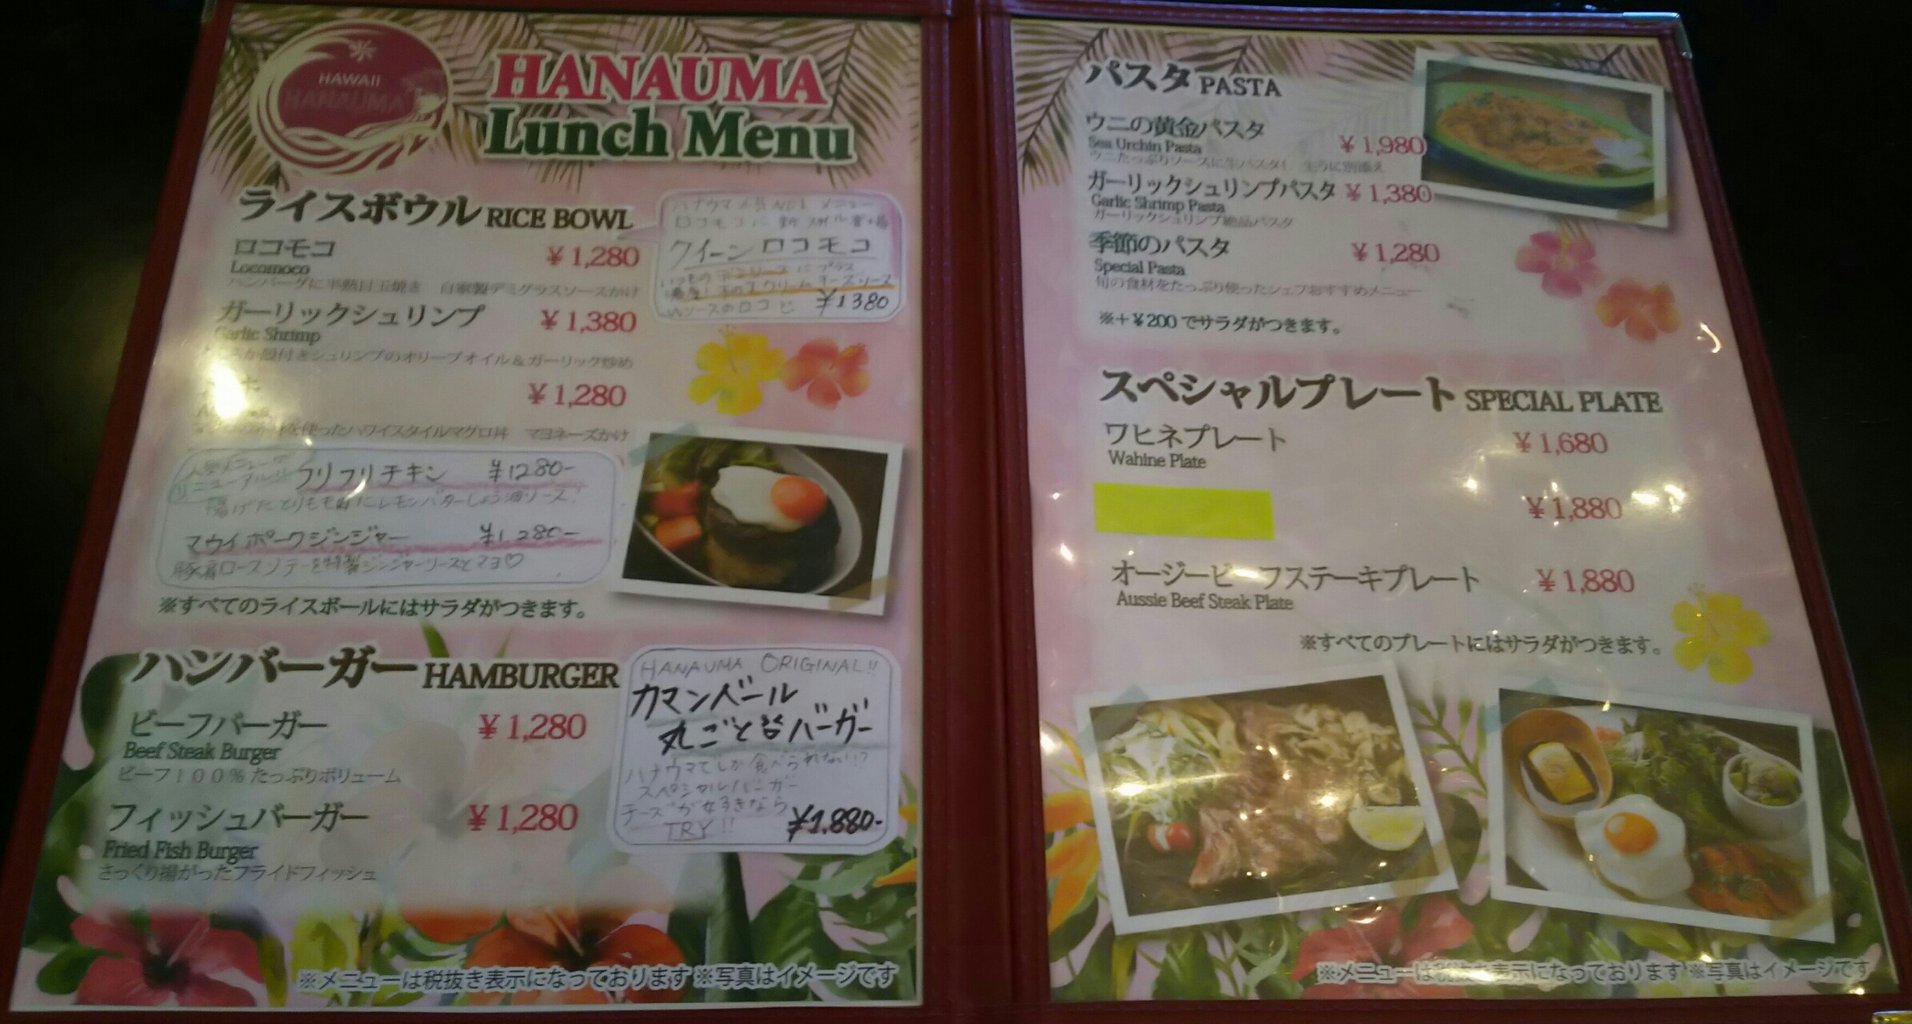 HAWAII
HANAUMA
HANAUMA
Lunch Menu
ライスボウル RICE BOWL
ロコモコ ¥1,280
Locomoco
ハンバーグに半熟目玉焼き 自家製デミグラスソースがけ
ガーリックシュリンプ ¥1,380
Garlic Shrimp
殻付きシュリンプのオリーブオイル&ガーリック炒め
¥1,280
を使ったハワイスタイルマグロ丼 マヨネーズがけ
メニュー
ロコモコに新
クイーンロコモコ
いつもの デミソースにプラス
クリームチーズソース
Wソースのロコ ¥1380
リニューアル
フリフリチキン ¥1280-
揚げたとりもも肉にレモンバターしょう油ソース!
マウイポークジンジャー ¥1,280-
豚肩ロースソテーを特製ジンジャーソースとマヨ♡
※すべてのライスボールにはサラダがつきます。
ハンバーガー HAMBURGER
ビーフバーガー ¥1,280
Beef Steak Burger
ビーフ100%たっぷりボリューム
フィッシュバーガー ¥1,280
Fried Fish Burger
さっくり揚がったフライドフィッシュ
HANAUMA ORIGINAL!!
カマンベール
丸ごと バーガー
ハナウマでしか食べられない!?
スペシャルバーガー
チーズが好きなら
TRY!! ¥1,880-
※メニューは税抜き表示になっております ※写真はイメージです
パスタ PASTA
ウニの黄金パスタ ¥1,980
Sea Urchin Pasta
ウニたっぷりソースに生パスタ! 生うに別添え
ガーリックシュリンプパスタ ¥1,380
Garlic Shrimp Pasta
ガーリックシュリンプ絶品パスタ
季節のパスタ ¥1,280
Special Pasta
旬の食材をたっぷり使ったシェフおすすめメニュー
※+¥200でサラダがつきます。
スペシャルプレート SPECIAL PLATE
ワヒネプレート ¥1,680
Wahine Plate
¥1,880
オージービーフステーキプレート ¥1,880
Aussie Beef Steak Plate
※すべてのプレートにはサラダがつきます。
※メニューは税抜き表示になっております ※写真はイメージです